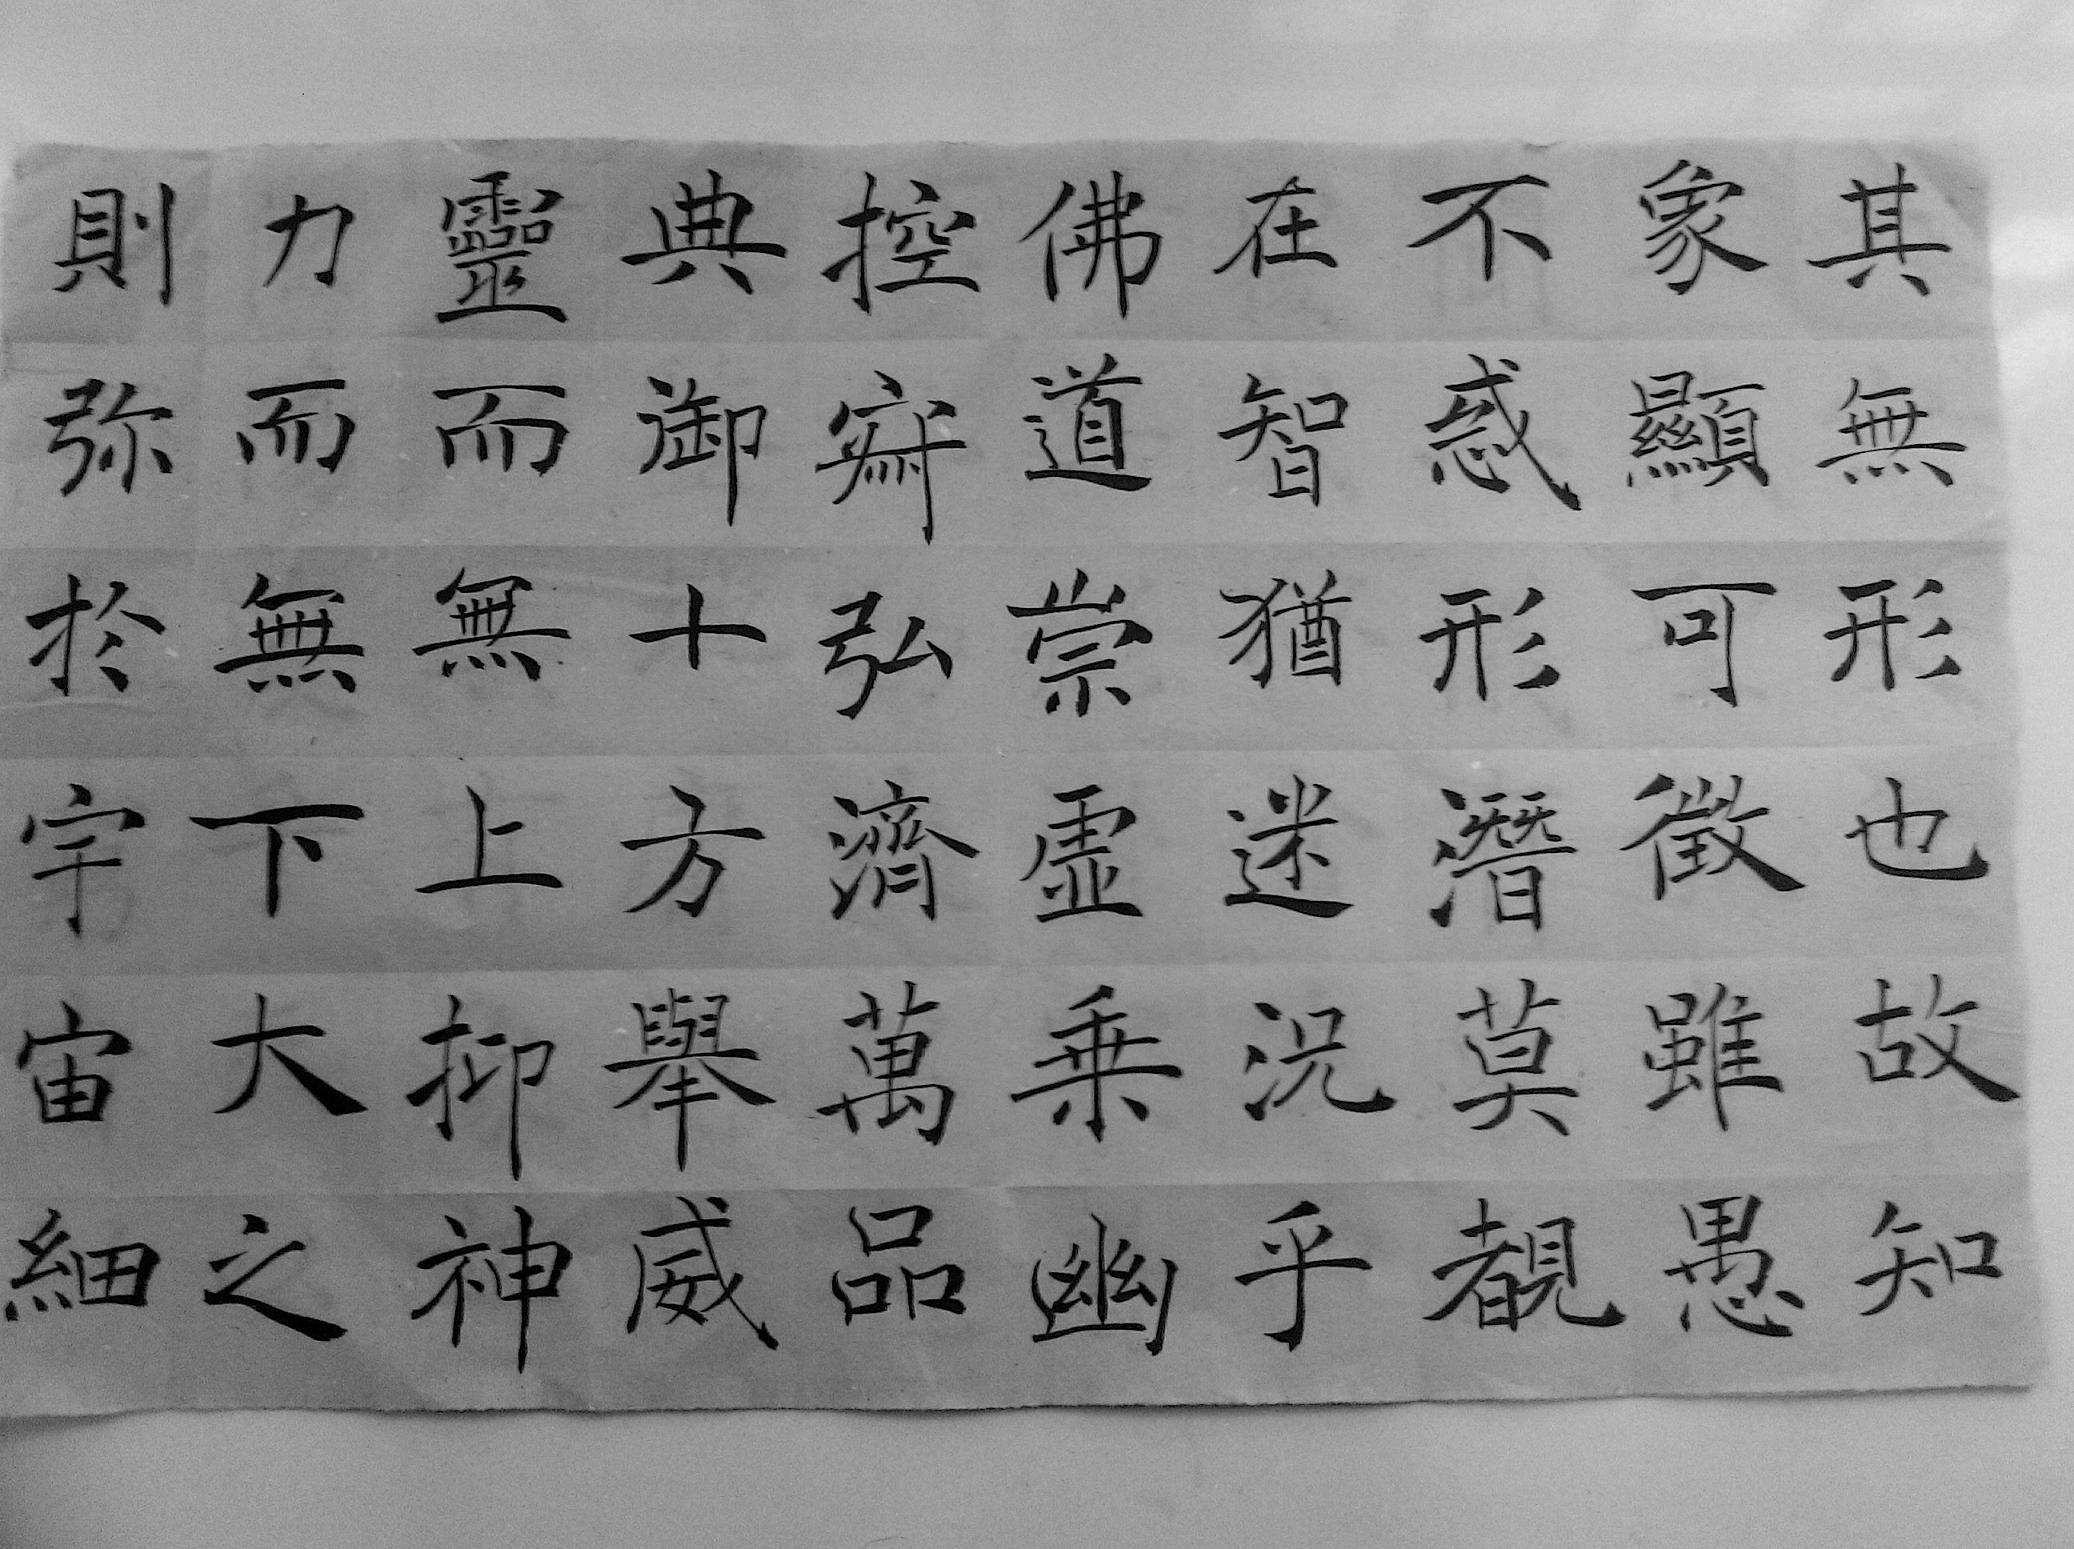 其無形也故知
象顯可徵雖愚
不惑形潛莫覩
在智猶迷況乎
佛道崇虚乗幽
控寂弘濟萬品
典御十方舉威
靈而無上抑神
力而無下大之
則弥於宇宙細